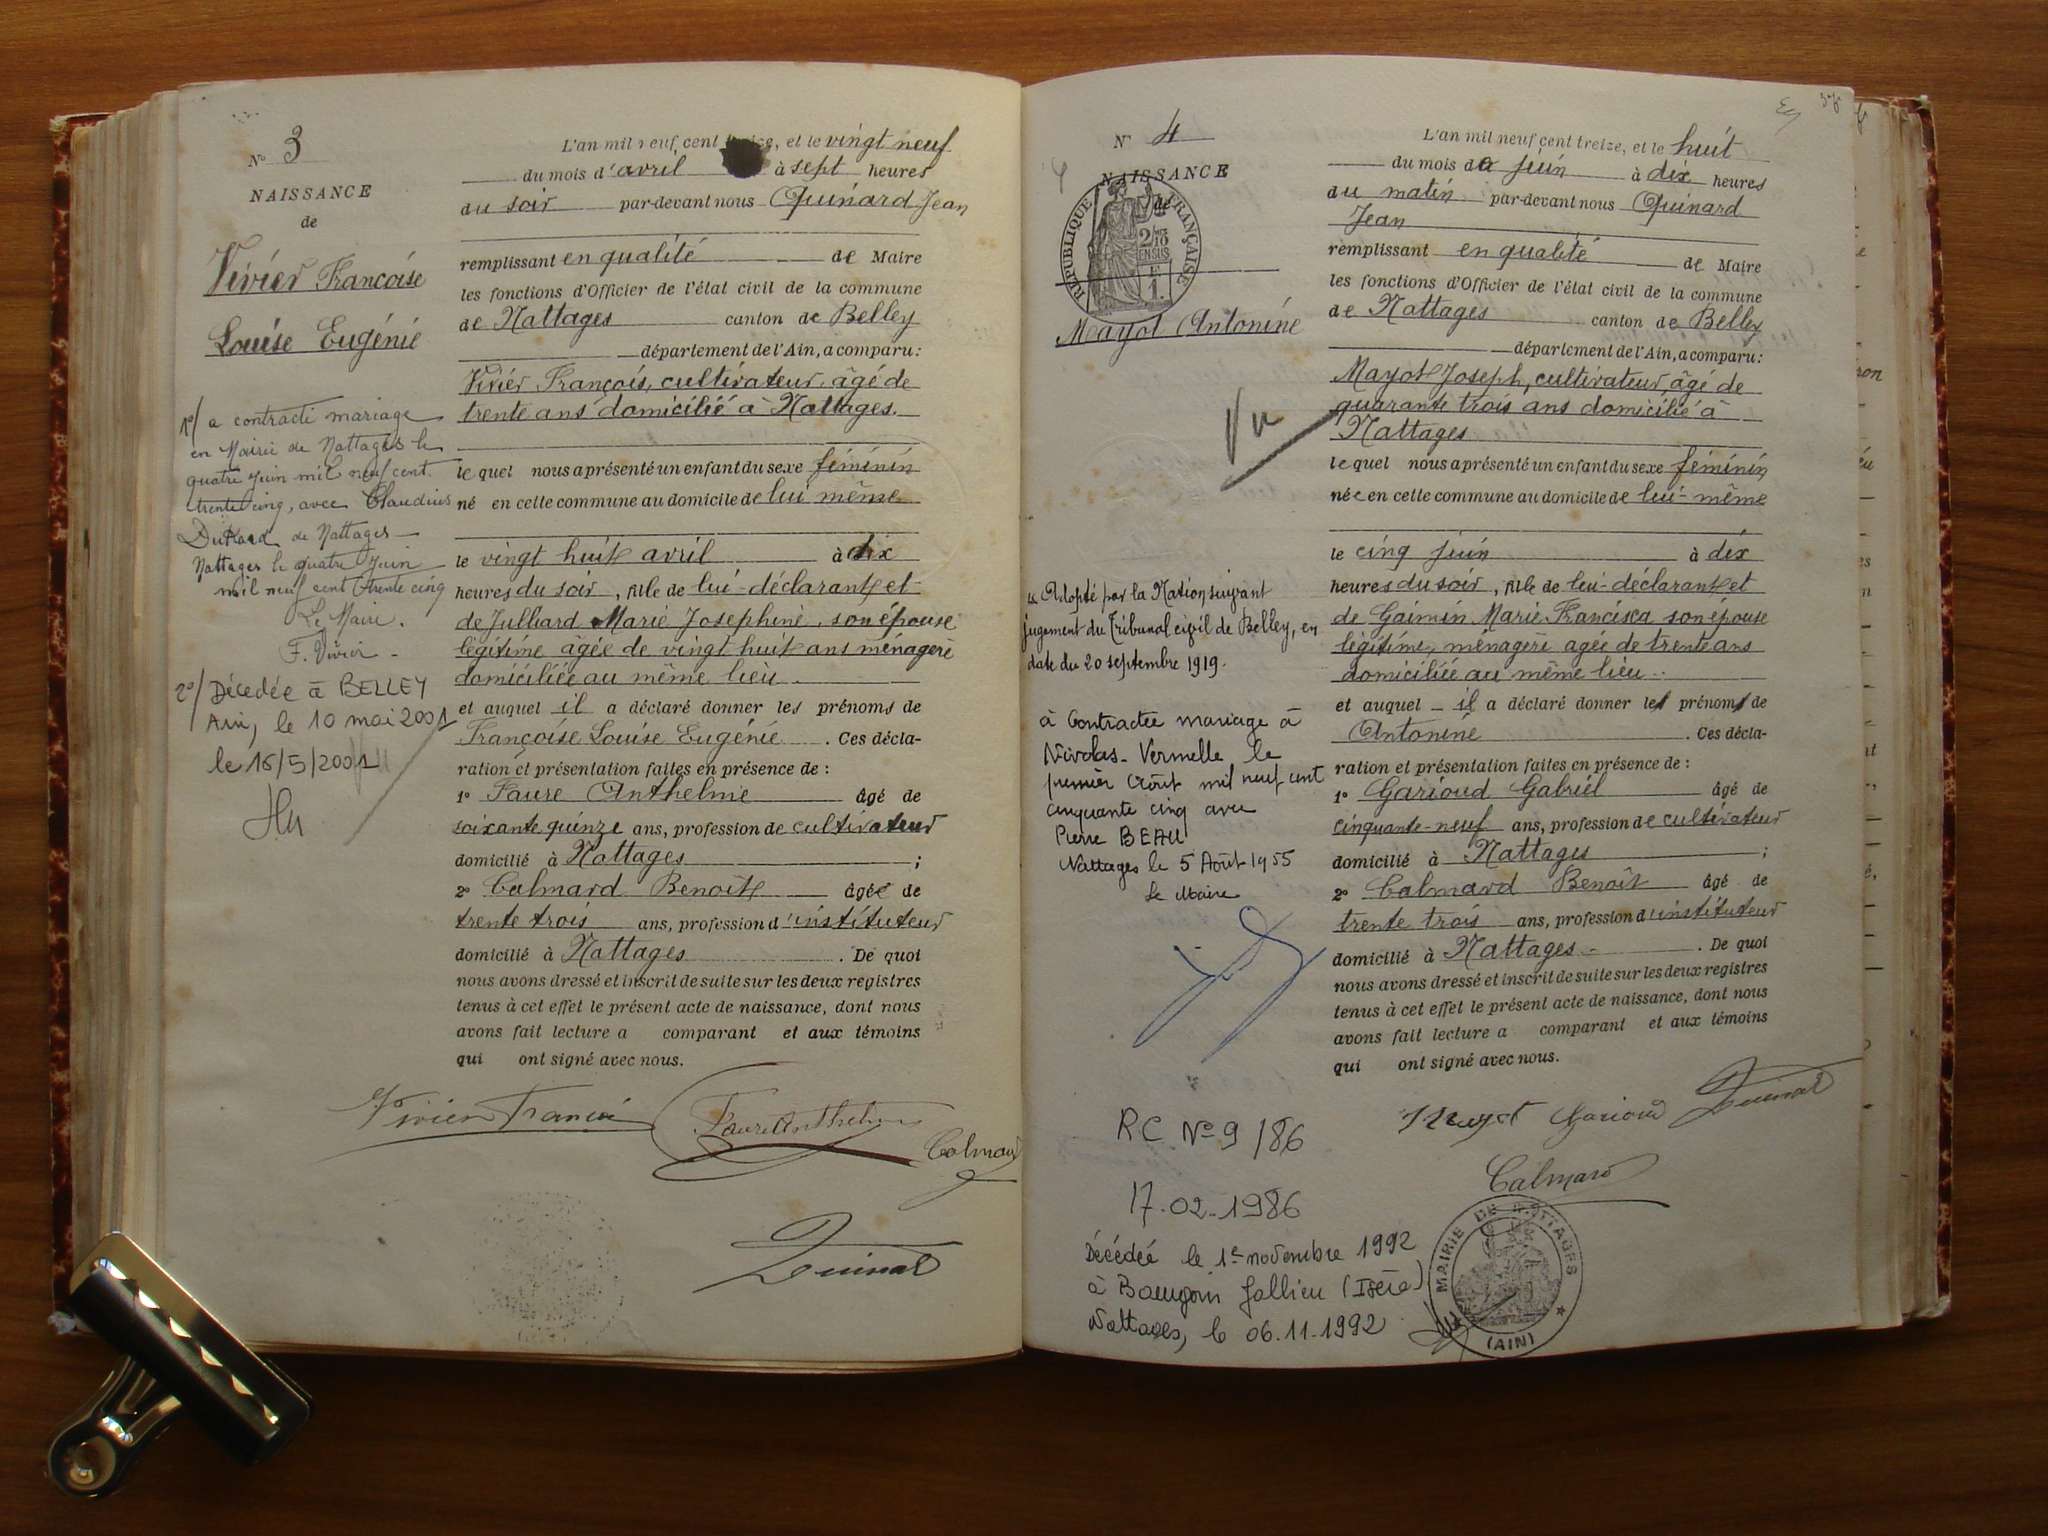 N° 3
NAISSANCE
de
Vivier Françoise
Louise Eugénie
1°/ a contracté mariage
en Mairie de Nattages le
quatre Juin mil neuf cent
trente cinq, avec Claudius
de Nattages
Nattages le quatre Juin
mil neuf cent trente cinq
Le Maire.
F. Vivier
2°/ Décédée à BELLEY
Ain, le 10 mai 2001
le 16/5/2001
L'an mil neuf cent treize, et le vingt neuf
du mois d'avril à sept heures
du soir par-devant nous Quinard Jean
remplissant en qualité de Maire
les fonctions d'Officier de l'état civil de la commune
de Nattages canton de Belley
département de l'Ain, a comparu:
Vivier François, cultivateur âgé de
trente ans domicilié à Nattages.
le quel nous a présenté un enfant du sexe féminin
né en cette commune au domicile de lui même
le vingt huit avril à dix
heures du soir, fille de lui-déclarant et
de Julliard Marie Josephine, son épouse
légitime âgée de vingt huit ans ménagère
domiciliée au même lieu
et auquel il a déclaré donner les prénoms de
Françoise Louise Eugénie. Ces décla-
ration et présentation faites en présence de :
1° Faure Anthelme âgé de
soixante quinze ans, profession de cultivateur
domicilié à Nattages ;
2° Calmard Benoît âgé de
trente trois ans, profession d'instituteur
domicilié à Nattages. De quoi
nous avons dressé et inscrit de suite sur les deux registres
tenus à cet effet le présent acte de naissance, dont nous
avons fait lecture a comparant et aux témoins
qui ont signé avec nous.
Vivier François Faure Anthelme
Calmard
Quinard
N° 4
NAISSANCE
de
RÉPUBLIQUE FRANÇAISE
2/10
EN SUS
1.
Mayot Antonine
Vu
Adopté par la Nation suivant
jugement du Tribunal civil de Belley, en
date du 20 septembre 1919.
à Contractée mariage à
Nivolas-Vermelle le
premier Août mil neuf cent
cinquante cinq avec
Pierre BEAU
Nattages le 5 Août 1955
Le Maire
RC N° 9/86
17.02.1986
Décédée le 1er novembre 1992
à Bourgoin Jallieu (Isère)
Nattages, le 06.11.1992
L'an mil neuf cent treize, et le huit
du mois de juin à dix heures
du matin par-devant nous Quinard
Jean
remplissant en qualité de Maire
les fonctions d'Officier de l'état civil de la commune
de Nattages canton de Belley
département de l'Ain, a comparu:
Mayot Joseph, cultivateur âgé de
quarante trois ans domicilié à
Nattages
le quel nous a présenté un enfant du sexe féminin
née en cette commune au domicile de lui-même
le cinq juin à dix
heures du soir, fille de lui-déclarant et
de Gaimin Marie Francisca son épouse
légitime, ménagère agée de trente ans
domiciliée au même lieu
et auquel il a déclaré donner les prénoms de
Antonine. Ces décla-
ration et présentation faites en présence de :
1° Garioud Gabriel âgé de
cinquante-neuf ans, profession de cultivateur
domicilié à Nattages ;
2° Calmard Benoît âgé de
trente trois ans, profession d'instituteur
domicilié à Nattages. De quoi
nous avons dressé et inscrit de suite sur les deux registres
tenus à cet effet le présent acte de naissance, dont nous
avons fait lecture a comparant et aux témoins
qui ont signé avec nous.
Mayot Garioud Quinard
Calmard
MAIRIE DE NATTAGES
(AIN)